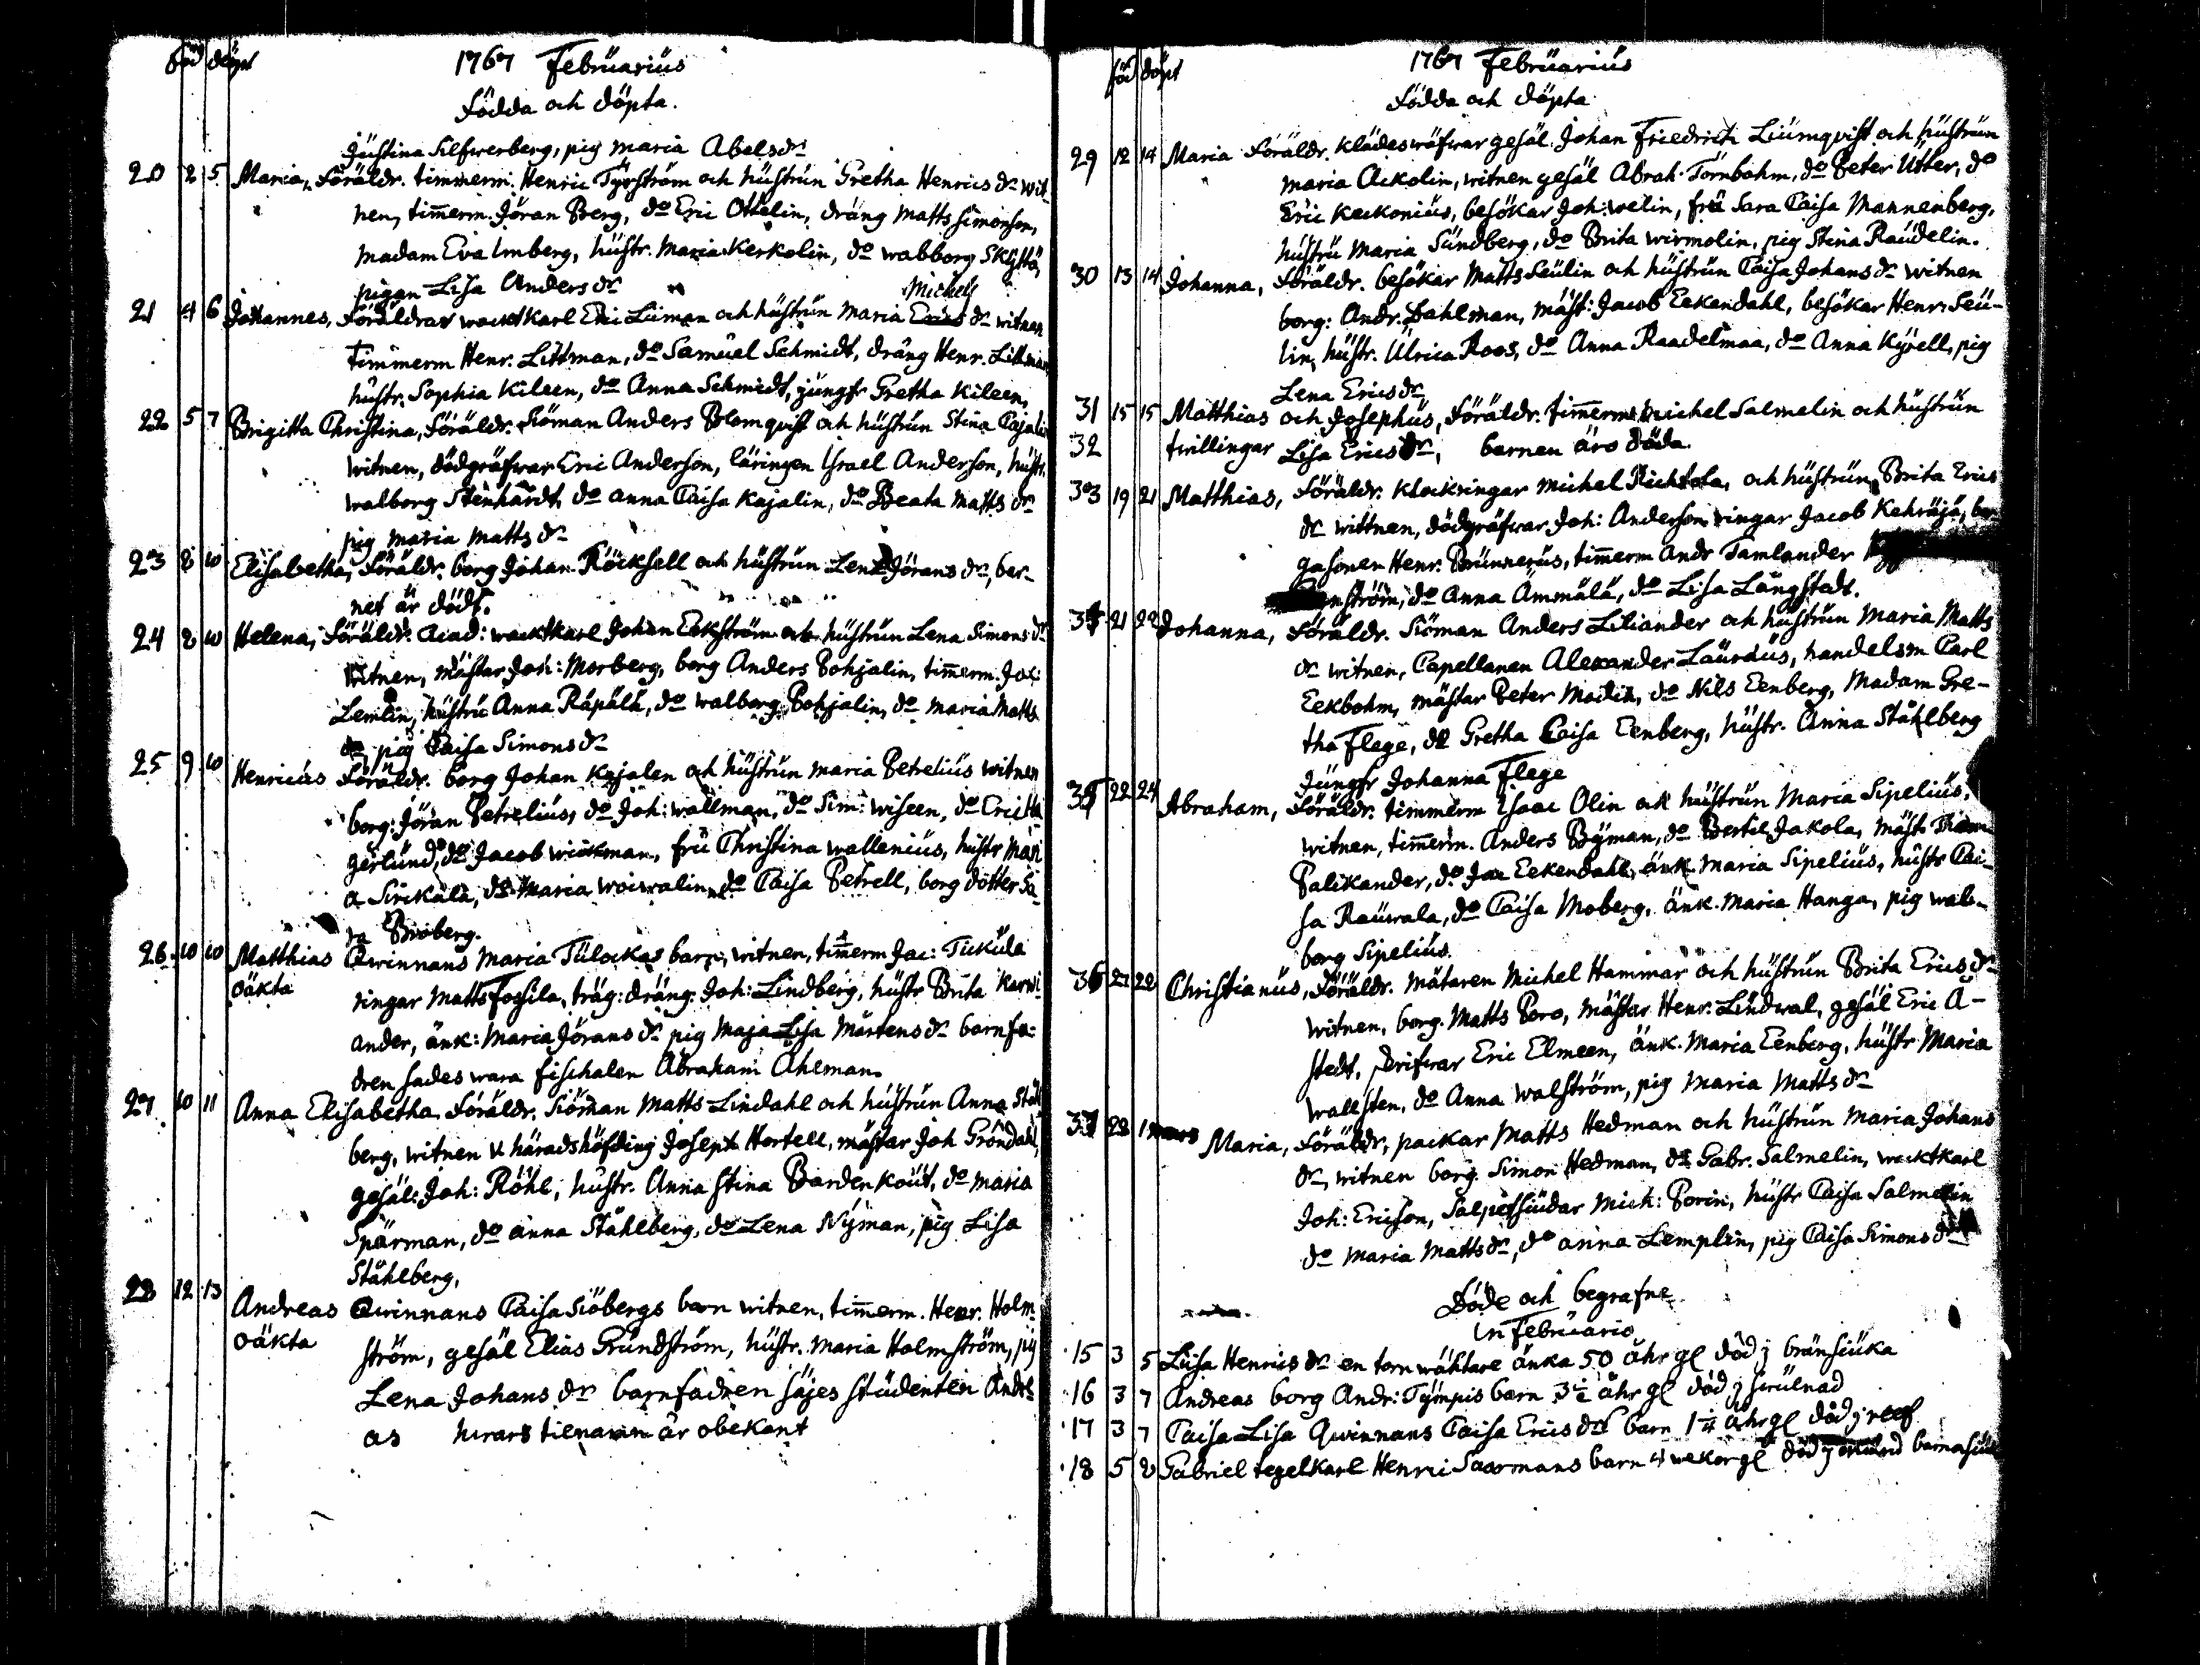 föd döpt
1767 Februarius
Födda och döpta.
Justina Silfwerberg, pig Maria Abels dr
20 2 5 Maria, Föräldr. timmerm. Henric Tyrström och hustrun Gretha Henrics dr wit
nen, timerm. Jöran Berg, do Eric Ottelin, dräng Matts Simonson,
Madam Eva Imberg, hustr. Maria Kerkolin, do Wabborg Skyttä,
pigan Lisa Anders dr
21 4 6 Johannes, Föräldrar wacktkarl Eric Liman och hustrun Maria Michels dr witnen
Timmerm Henr. Littman, do Samuel Schmidt, dräng Henr. Littman
hustr. Sophia Kileen, do Anna Schmidt, jungfr Gretha Kileen,
22 5 7 Brigitta Christina, Föräldr. Siöman Anders Blomqvist och hustrun Stina Cajalin
witnen, dödgräfwar Eric Anderson, läringen Israel Anderson, hustr.
walborg Stenhardt, do Anna Caisa Kajalin, do Beata Matts dr
pig Maria Matts dr
23 8 10 Elisabetha, Föräldr. borg Johan Röcksell och hustrun Lena Jörans dr, bar-
net är dödt.
24 8 10 Helena, Föräldr. Acad: wacktkarl Johan Eekström och hustrun Lena Simons dr
witnen, mästar Joh: Morberg, borg Anders Pohjalin, timerm. Joh:
Lemlin, hustru Anna Räpälä, do walborg Pohjalin, do Maria Matts
dr pig Caisa Simons dr
25 9 10 Henricus Föräldr. borg Johan Kajalen och hustrun Maria Petrelius witnen
borg: Jöran Petrelius, do Joh: wallman, do Sim: wiseen, do Eric Ha
gerlund, do Jacob wickman, fru Christina wallenius, hustr Mari
a Sirckälä, do Maria woiwalin, do Caisa Petrell, borg dotter Sa
ra Broberg.
26 10 10 Matthias Qwinnans Maria Tulockas barn, witnen, timerm Jac: Tuckula
oäkta ringar Matts Fossila, träg: dräng: Joh: Lindberg, hustr Brita Karwi
ander, änk: Maria Jörans dr pig Maja Lisa Mårtens dr barnfa:
dren sades wara fischalen Abraham Ahlman.
27 10 11 Anna Elisabetha, Föräldr. Siöman Matts Lindahl och hustrun Anna Ståhl
berg, witnen V häradshöfding Joseph Hertell, mästar Joh Gröndahl,
gesäl: Joh: Röhl, hustr. Anna Stina Bardenkout, do Maria
Spärman, do Anna Ståhlberg, do Lena Nyman, pig Lisa
Ståhlberg,
28 12 13 Andreas Qwinnans Caisa Siöbergs barn witnen, timerm. Henr. Holm
oäkta ström, gesäl Elias Grundström, hustr. Maria Holmström, pig
Lena Johans dr barnfadren säjes studenten Andre
as hwars tilnamn är obekant
föd döpt
1767 Februarius
Födda och döpta
29 12 14 Maria Föräldr. Klädeswäfwar gesäl. Johan Friedrich Liumqvist och hustrun
Maria Ackolin, witnen gesäl Abrah. Törnbohm, do Peter Utter, do
Eric Keckonius, besökar Joh: welin, fru Sara Caisa Mannenberg,
hustru Maria Sundberg, do Brita wirmolin, pig Stina Raudelin.
30 13 14 Johanna, Föräldr. besökar Matts Seulin och hustrun Caisa Johans dr witnen
borg: Andr. Dahlman, mäst: Jacob Eekendahl, besökar Henr: Seu-
lin, hustr. Ulrica Roos, do Anna Raadelmaa, do Anna Kyrell, pig
Lena Erics dr
31 15 15 Matthias och Josephus, Föräldr. timerm Michel Salmelin och hustrun
32 twillingar Lisa Erics dr, barnen äro döda
33 19 21 Matthias, Föräldr. Klockringar Michel Richtola, och hustrun Brita Erics
dr wittnen, dödgräfwar Joh: Anderson, ringar Jacob Kehräjä,
gasonen Henr: Brunnerus, timerm Andr Tamlander
ström, do Anna Ämmälä, do Lisa Långstedt.
34 21 22 Johanna, Föräldr. Siöman Anders Liliander och hustrun Maria Matts
dr witnen, Capellanen Alexander Lauräus, handelsm Carl
Eekbohm, mästar Peter Modin, do Nils Eenberg, Madam Gre-
tha Flege, do Gretha Caisa Eenberg, hustr. Anna Ståhlberg
Jungfr Johanna Flege
35 22 24 Abraham, Föräldr. timmerm Isaac Olin och hustrun Maria Sipelius,
witnen, timerm. Anders Byman, do Bertil Jakola, mäst.
Palikander, do Jac Eekendahl, änk. Maria Sipelius, hustr Cai-
sa Rauwala, do Caisa Moberg, änk. Maria Hanga, pig wal-
borg Sipelius.
36 22 22 Christianus, Föräldr. mätaren Michel Hammar och hustrun Brita Erics dr
witnen, borg. Matts Poro, mästar Henr: Lindwal, gesäl Eric A-
stedt, skrifwar Eric Elmeen, änk. Maria Eenberg, hustr Maria
wallsten, do Anna walström, pig Maria Matts dr
37 28 1 mars Maria, Föräldr, packar Matts Hedman och hustrun Maria Johans
dr, witnen borg. Simon Hedman, do Gabr. Salmelin, wacktkarl
Joh: Ericson, Salpetsiudar Mich: Porin, hustr Caisa Salmelin
do Maria Matts dr, do Anna Lemplin, pig Caisa Simons dr
Döde och begrafne
in Februario
15 3 5 Lisa Henrics dr en tornwäktare änka 50 åhr gl död j bränsiuka
16 3 7 Andreas borg Andr: Tympis barn 3½ åhr gl död j swulnad
17 3 7 Caisa Lisa Qwinnans Caisa Erics drs barn 1¼ åhr gl död j
18 5 8 Gabriel tegelkarl Henric Saxmans barn 4 wekor gl död j barnasiuk